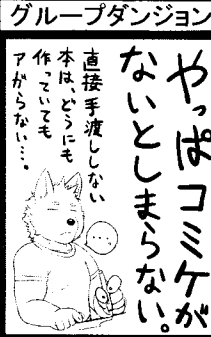 グループダンジョン
やっぱコミケが
ないとしまらない。
直接手渡ししない
本は、どうにも
作っていても
アがらない…。
…